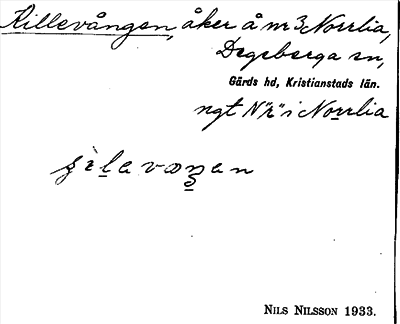 Killevången, åker å nr 3 Norrlia,
Degeberga sn,
Gärds hd, Kristianstads län.
ngt N "r" i Norrlia
NILS NILSSON 1933.